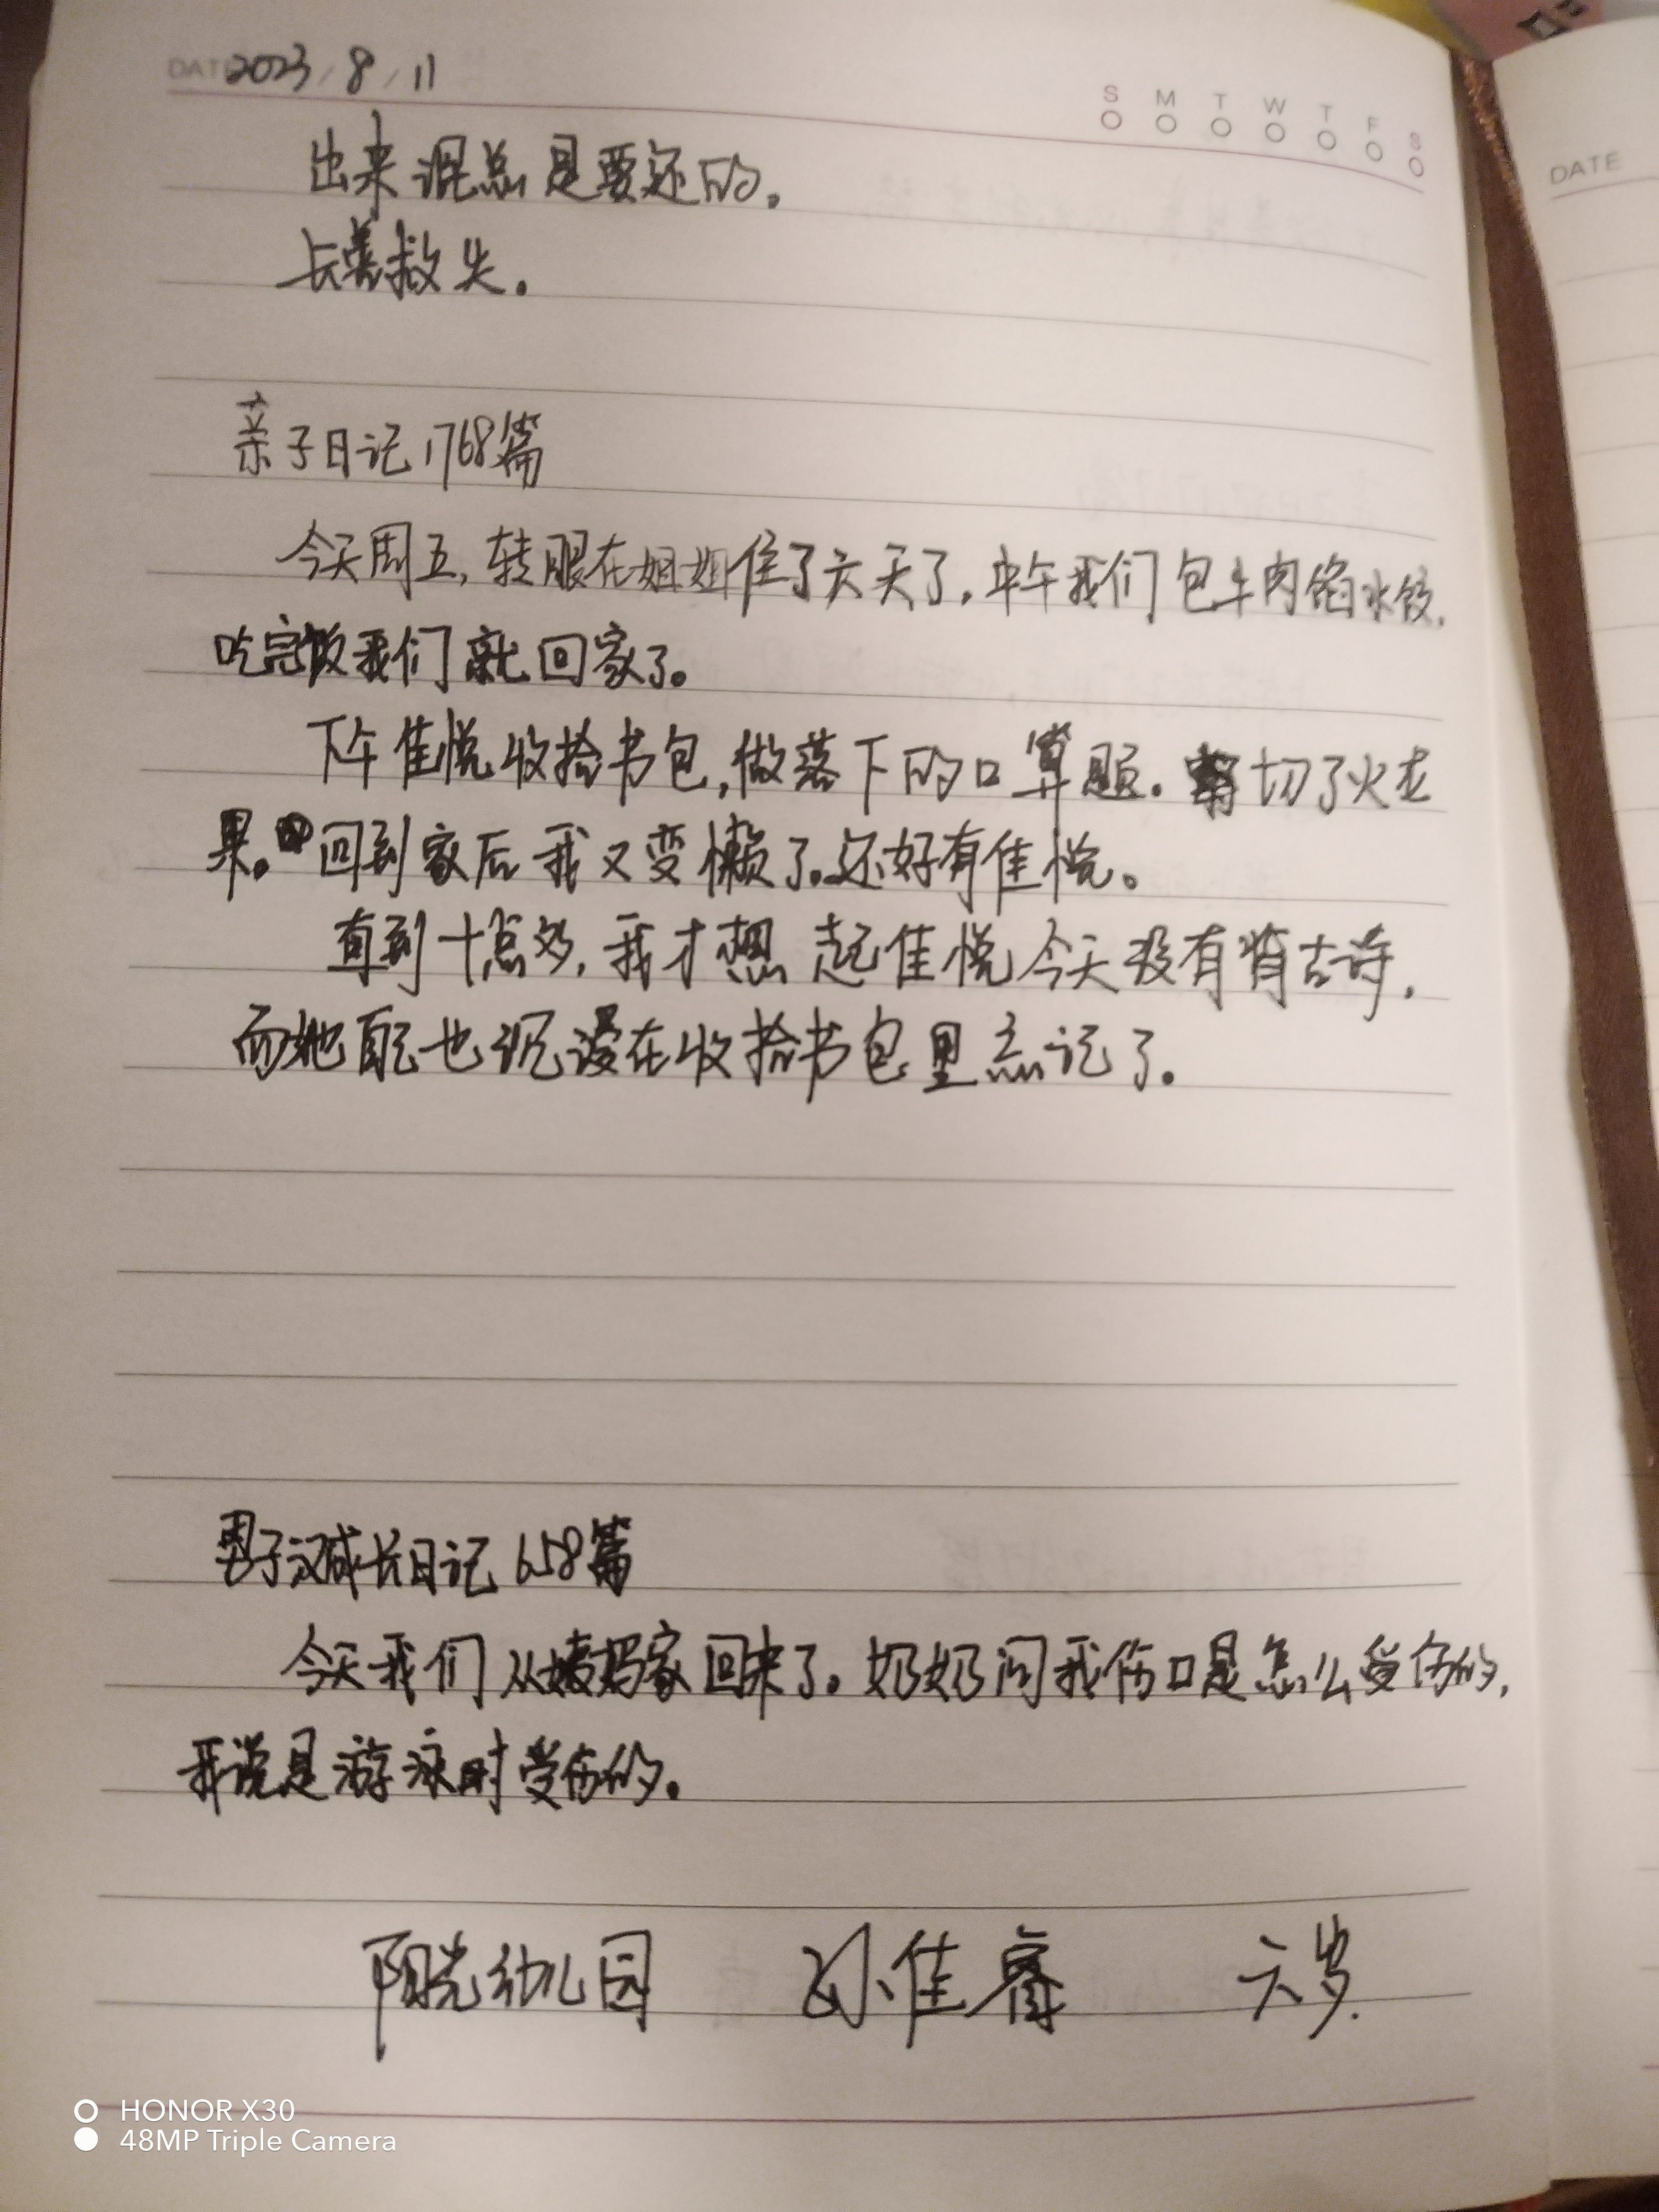 DATE 2023/8/11
S M T W T F S
出来混总是要还的。
长善救失。
亲子日记1768篇
今天周五,转眼在姐姐住了六天了,中午我们包牛肉馅水饺,
吃完饭我们就回家了。
下午佳悦收拾书包,做落下的口算题。切了火龙
果。回到家后我又变懒了。还好有佳悦。
直到十点多,我才想起佳悦今天没有背古诗,
而她自己也沉浸在收拾书包里忘记了。
男子汉成长日记658篇
今天我们从姨妈家回来了。奶奶问我伤口是怎么受伤的,
我说是游泳时受伤的。
阳光幼儿园 孙佳睿 六岁.
DATE
HONOR X30
48MP Triple Camera